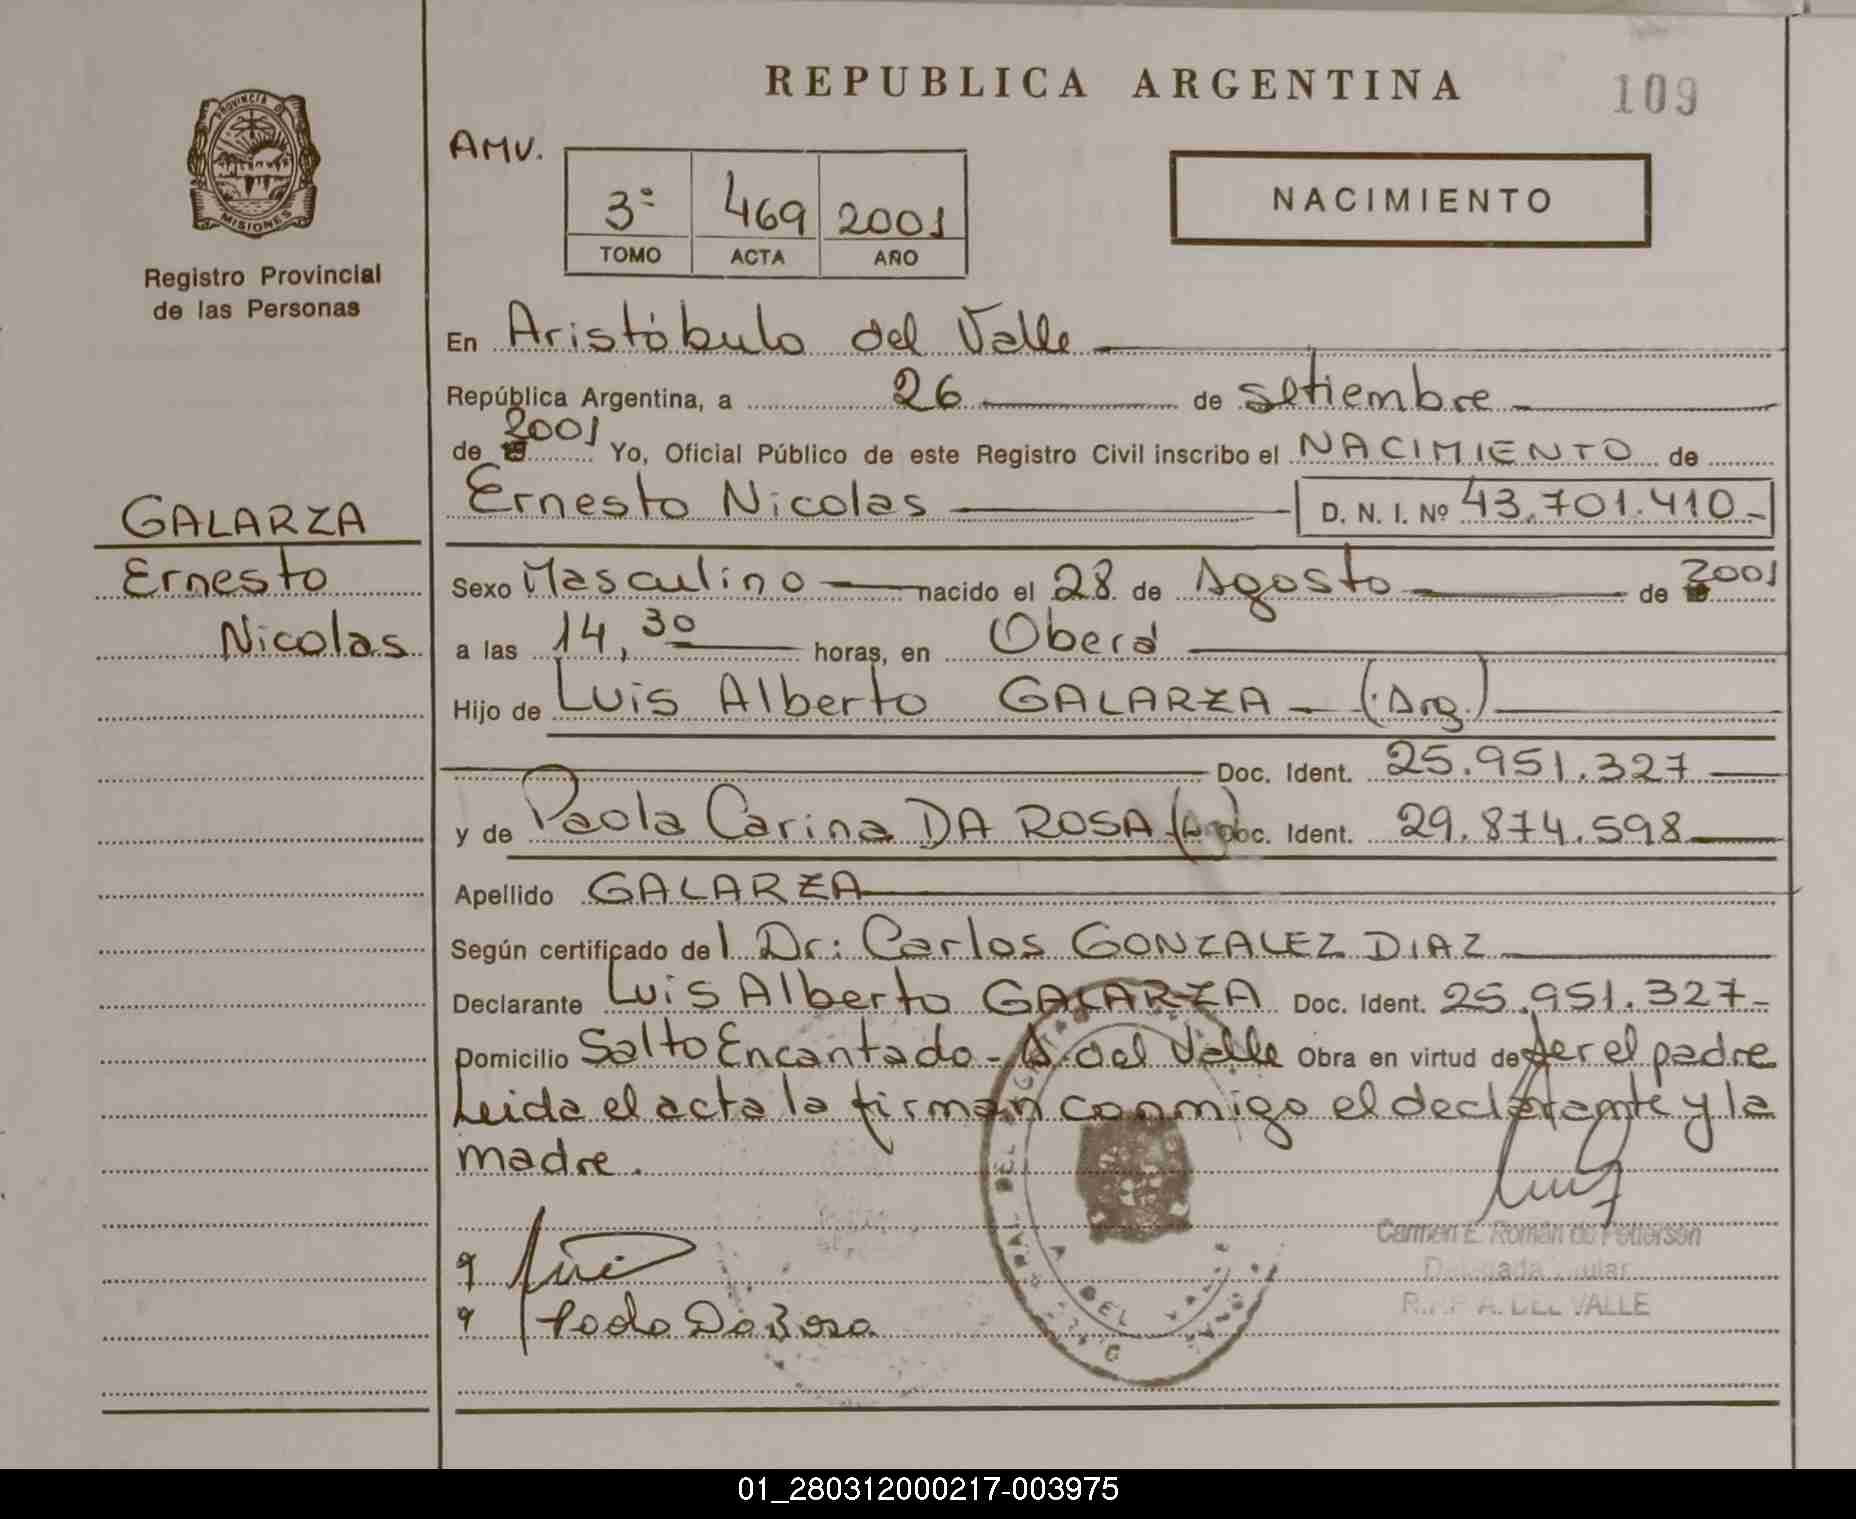 REPUBLICA ARGENTINA
109
PROVINCIA DE
MISIONES
Registro Provincial
de las Personas
AMV.
3º 469 2001
TOMO ACTA AÑO
NACIMIENTO
En Aristóbulo del Valle
República Argentina, a 26 de setiembre
de 19 2001 Yo, Oficial Público de este Registro Civil inscribo el NACIMIENTO de
Ernesto Nicolas D. N. I. Nº 43.701.410
GALARZA
Ernesto
Nicolas
Sexo Masculino nacido el 28 de Agosto de 2001
a las 14,30 horas, en Oberá
Hijo de Luis Alberto GALARZA (Arg.)
Doc. Ident. 25.951.327
y de Paola Carina DA ROSA (Arg) Doc. Ident. 29.874.598
Apellido GALARZA
Según certificado del Dr: Carlos GONZALEZ DIAZ
Declarante Luis Alberto GALARZA Doc. Ident. 25.951.327
Domicilio Salto Encantado - A. del Valle Obra en virtud de ser el padre
Leida el acta la firman conmigo el declarante y la
madre.
Carmen E. Román de Pettersen
A. DEL VALLE
01_280312000217-003975